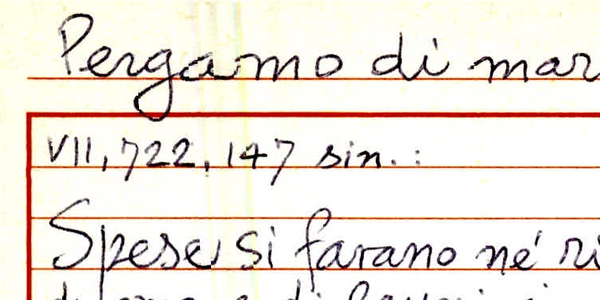 Pergamo di mar
VII, 722, 147 sin. :
Spese si farano né ri